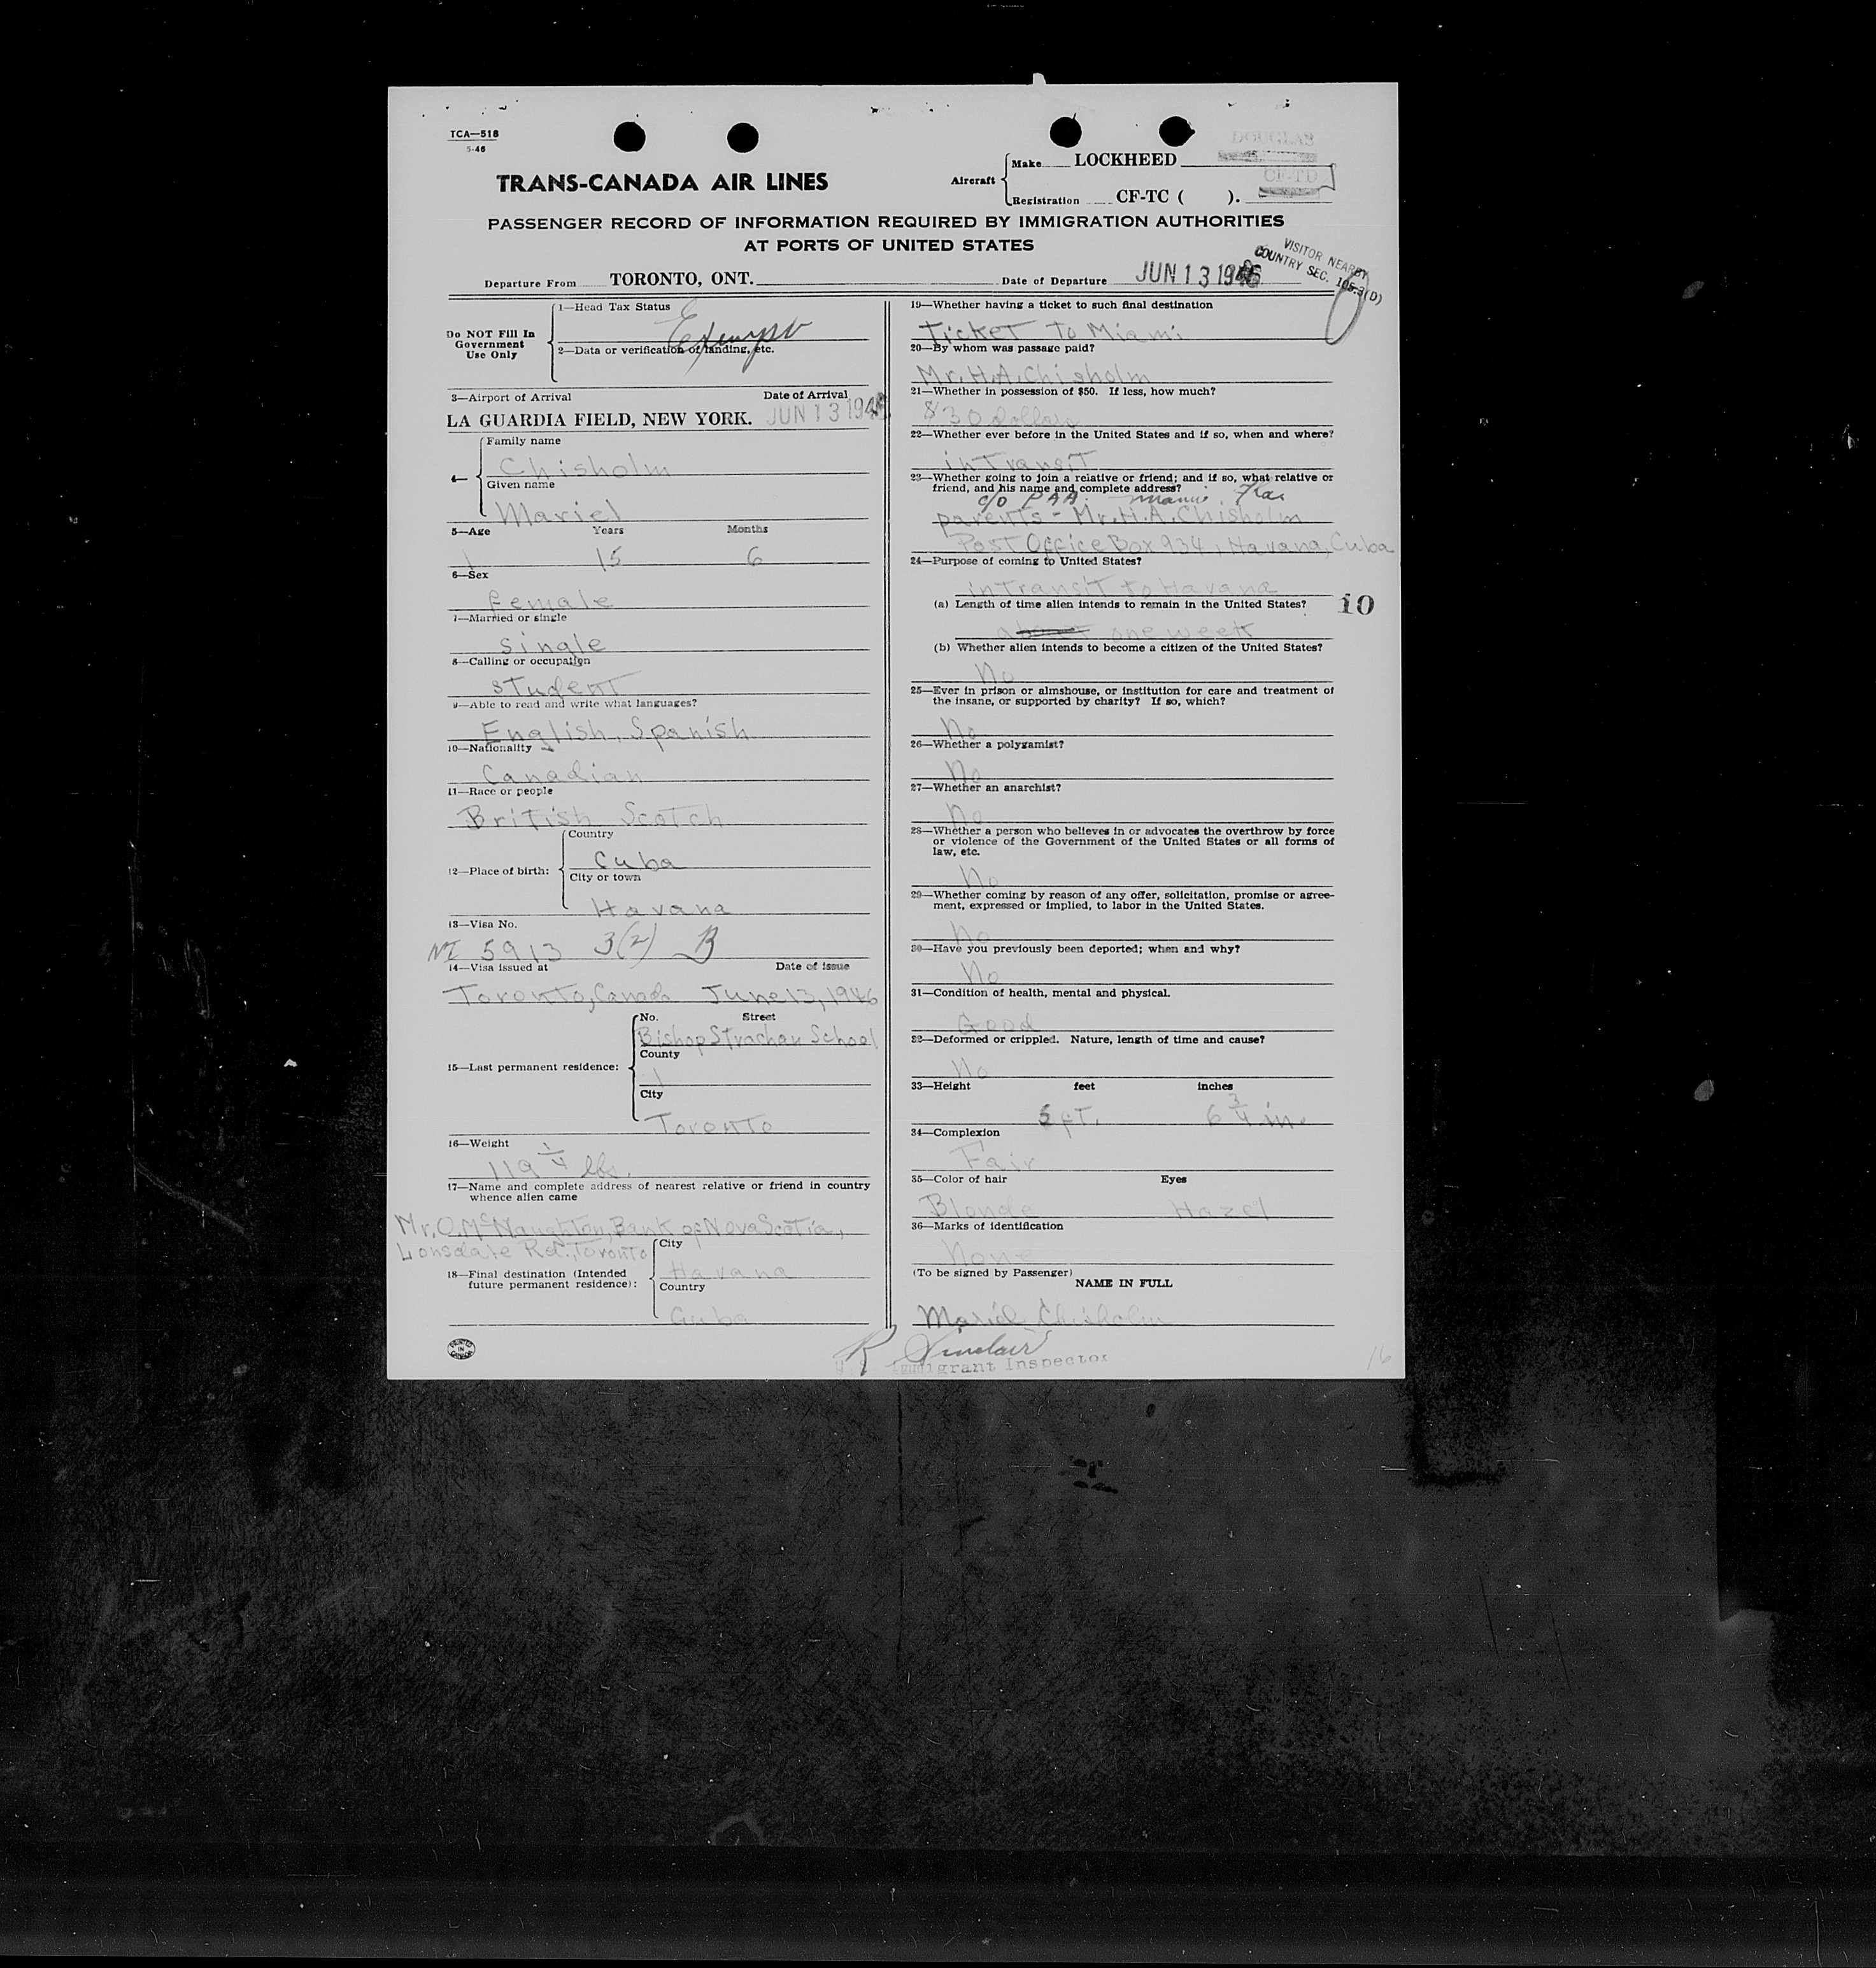 TCA—518
5-46
TRANS-CANADA AIR LINES
Aircraft
Make LOCKHEED
DOUGLAS
Registration CF-TC ( ).
CF-TD
PASSENGER RECORD OF INFORMATION REQUIRED BY IMMIGRATION AUTHORITIES
AT PORTS OF UNITED STATES
VISITOR NEARBY
COUNTRY SEC. 105.3(D)
Departure From TORONTO, ONT. Date of Departure JUN 13 1946
Do NOT Fill In
Government
Use Only
1—Head Tax Status
Exempt
2—Data or verification of landing, etc.
3—Airport of Arrival Date of Arrival
LA GUARDIA FIELD, NEW YORK. JUN 13 194
4—
Family name
Chisholm
Given name
Mariel
5—Age Years Months
15 6
6—Sex
female
7—Married or single
single
8—Calling or occupation
student
9—Able to read and write what languages?
English, Spanish
10—Nationality
Canadian
11—Race or people
British Scotch
12—Place of birth:
Country
Cuba
City or town
Havana
13—Visa No.
NI 5913 3(2) B
14—Visa issued at Date of issue
Toronto, Canada June 13, 1946
15—Last permanent residence:
No. Street
Bishop Strachan School
County
City
Toronto
16—Weight
119 1/4 lbs.
17—Name and complete address of nearest relative or friend in country
whence alien came
Mr. O. McNaughton, Bank of Nova Scotia,
Lonsdale Rd. Toronto
18—Final destination (Intended
future permanent residence):
City
Havana
Country
Cuba
PRINTED IN CANADA
19—Whether having a ticket to such final destination
Ticket to Miami
20—By whom was passage paid?
Mr. H. A. Chisholm
21—Whether in possession of $50. If less, how much?
$30 dollars
22—Whether ever before in the United States and if so, when and where?
in transit
23—Whether going to join a relative or friend; and if so, what relative or
friend, and his name and complete address?
c/o PAA. Miami, Fla
parents - Mr. H. A. Chisholm
Post Office Box 934, Havana, Cuba
24—Purpose of coming to United States?
in transit to Havana
(a) Length of time alien intends to remain in the United States?
10
one week
(b) Whether alien intends to become a citizen of the United States?
No
25—Ever in prison or almshouse, or institution for care and treatment of
the insane, or supported by charity? If so, which?
No
26—Whether a polygamist?
No
27—Whether an anarchist?
No
28—Whether a person who believes in or advocates the overthrow by force
or violence of the Government of the United States or all forms of
law, etc.
No
29—Whether coming by reason of any offer, solicitation, promise or agree-
ment, expressed or implied, to labor in the United States.
No
30—Have you previously been deported; when and why?
No
31—Condition of health, mental and physical.
Good
32—Deformed or crippled. Nature, length of time and cause?
No
33—Height feet inches
5 ft. 6 3/4 in.
34—Complexion
Fair
35—Color of hair Eyes
Blonde Hazel
36—Marks of identification
None
(To be signed by Passenger)
NAME IN FULL
Mariel Chisholm
R Sinclair
Immigrant Inspector
16